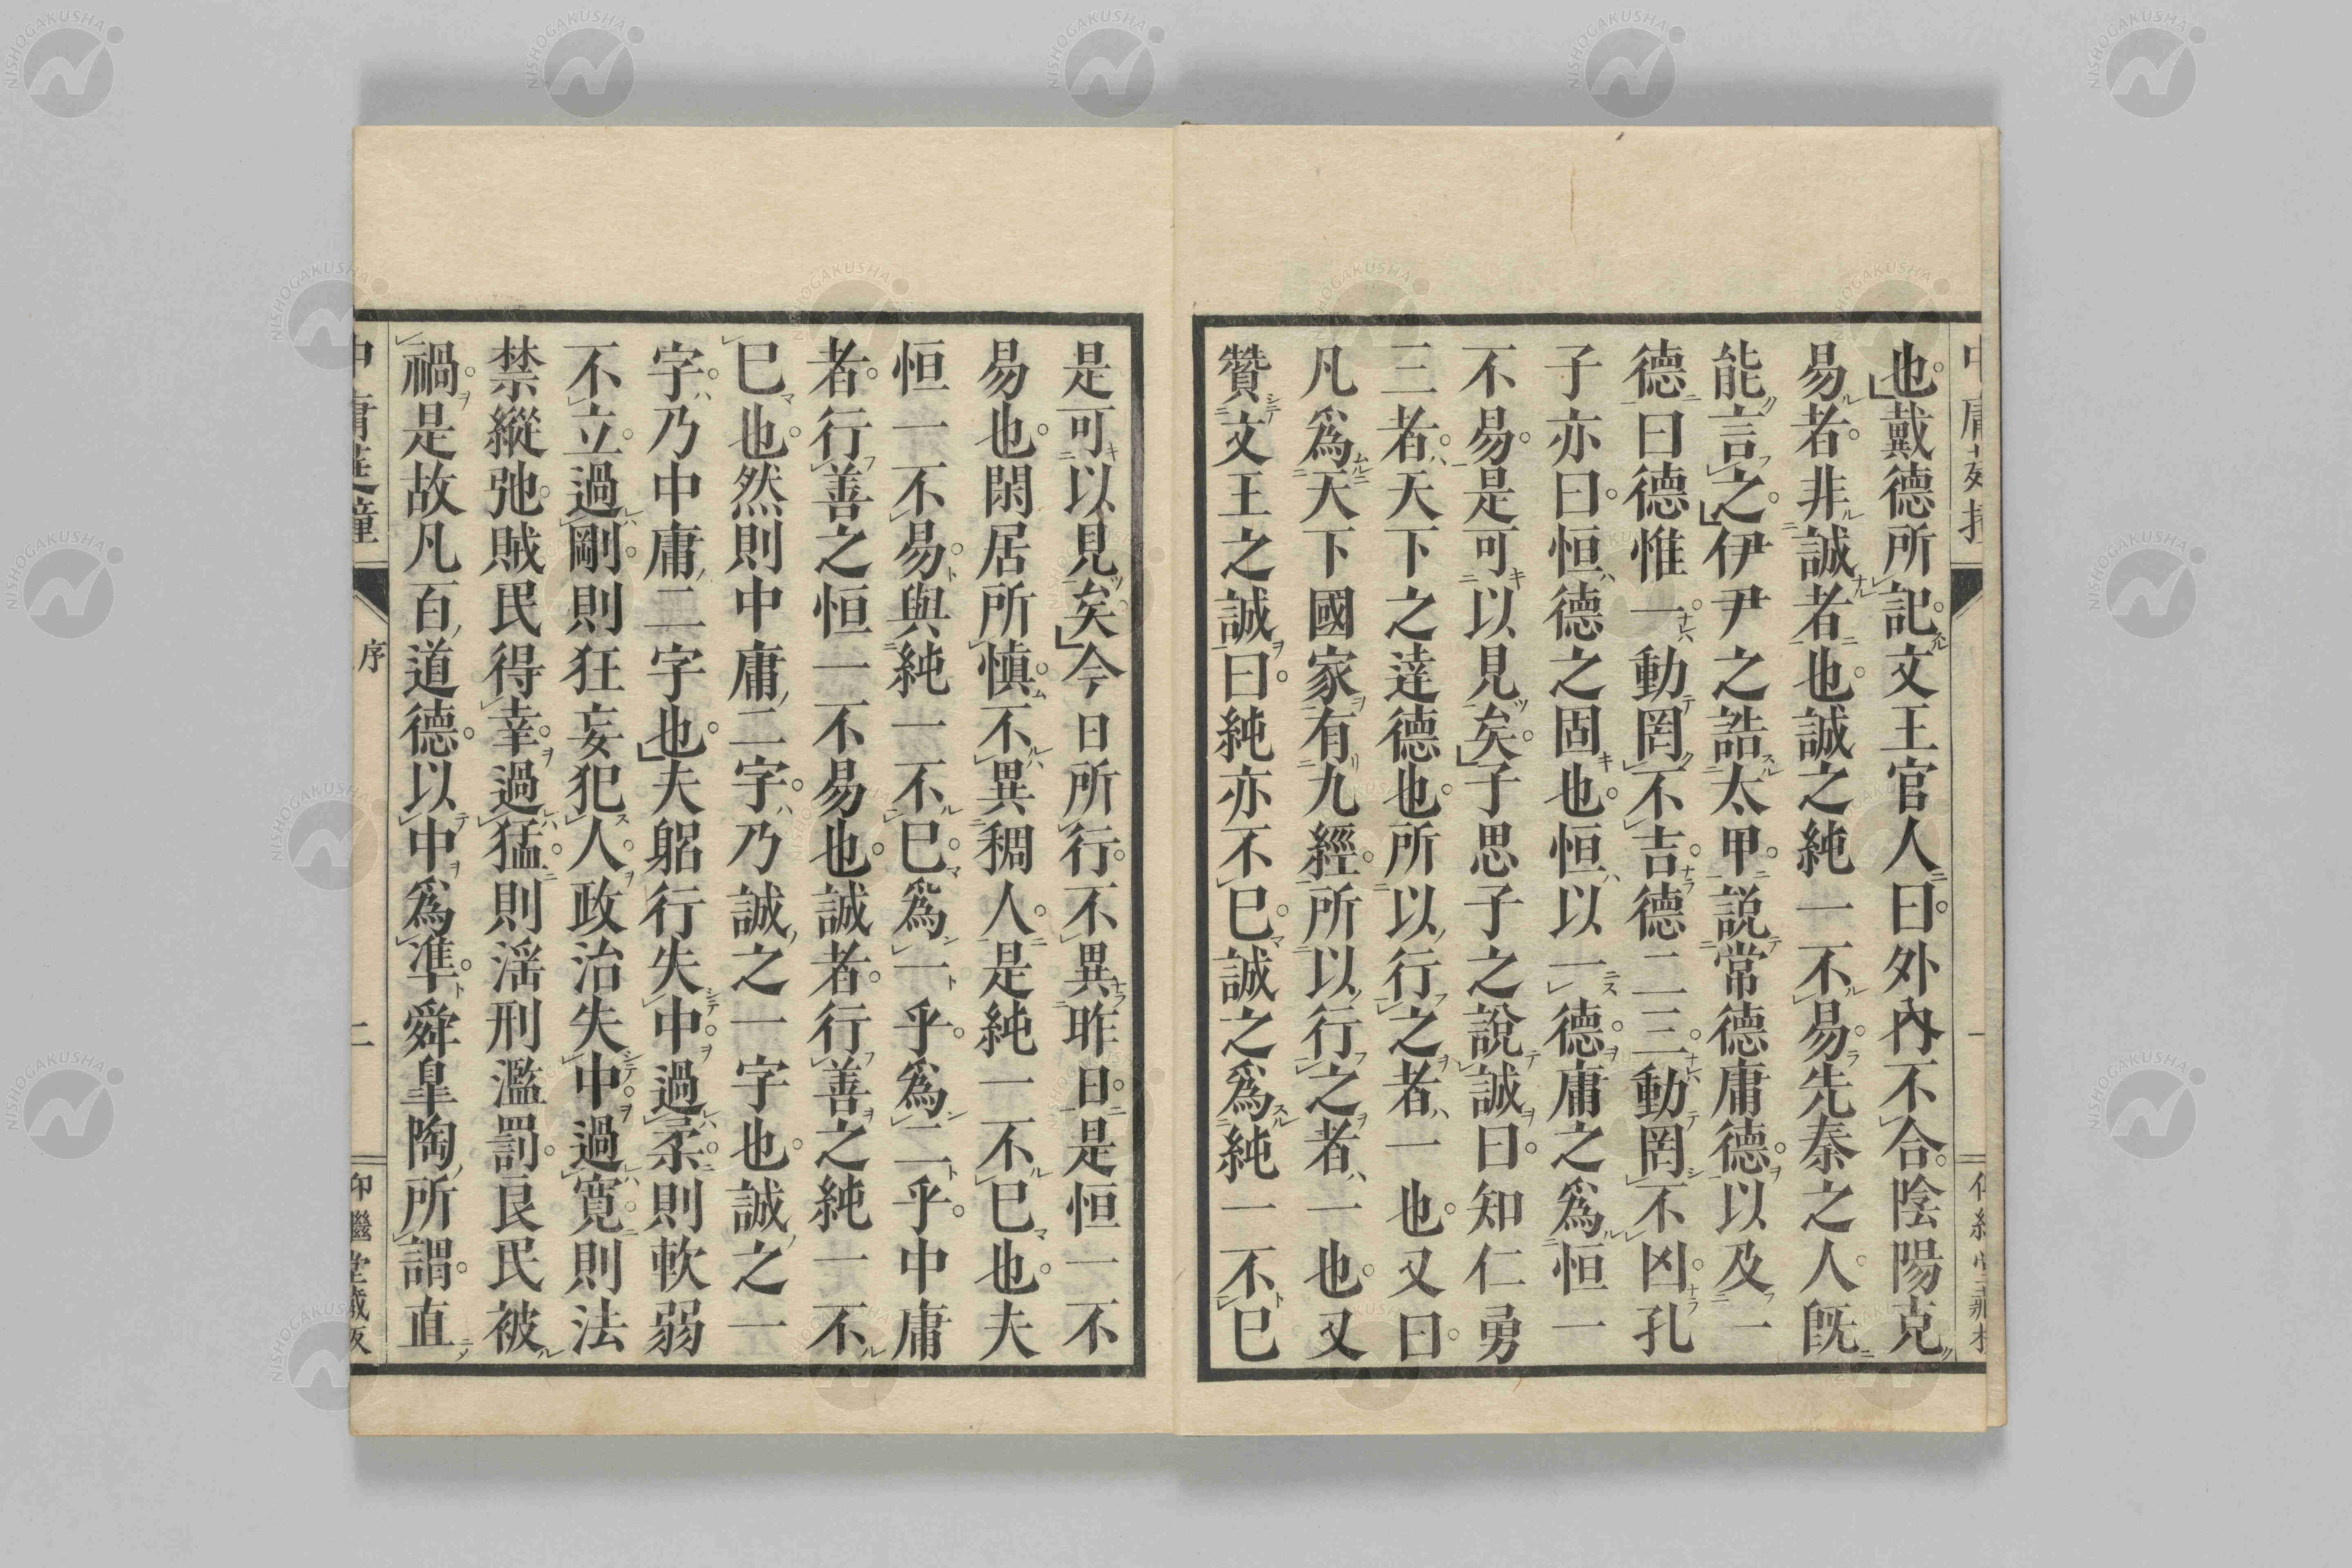 也。戴德所記。文王官人曰。外內不合。陰陽克
易者。非誠者也。誠之純一不易。先秦之人。旣
能言之。伊尹之誥太甲。說常德庸德。以及一
德曰德惟一。動罔不吉。德二三。動罔不凶。孔
子亦曰。恒德之固也。恒以一德。庸之爲恒一
不易。是可以見矣。子思子之說誠曰。知仁勇
三者。天下之達德也。所以行之者一也。又曰。
凡爲天下國家有九經。所以行之者一也。又
贊文王之誠曰。純亦不已。誠之爲純一不已
是可以見矣。今日所行。不異昨日。是恒一不
易也。閑居所愼。不異稠人。是純一不已也。夫
恒一不易。與純一不已。爲一乎。爲二乎。中庸
者。行善之恒一不易也。誠者。行善之純一不
已也。然則中庸二字。乃誠之一字也。誠之一
字。乃中庸二字也。夫躳行失中。過柔。則軟弱
不立。過剛。則狂妄犯人。政治失中。過寬。則法
禁縱弛。賊民得幸。過猛。則淫刑濫罰。良民被
禍。是故凡百道德。以中爲準。舜皐陶所謂。直
序
二